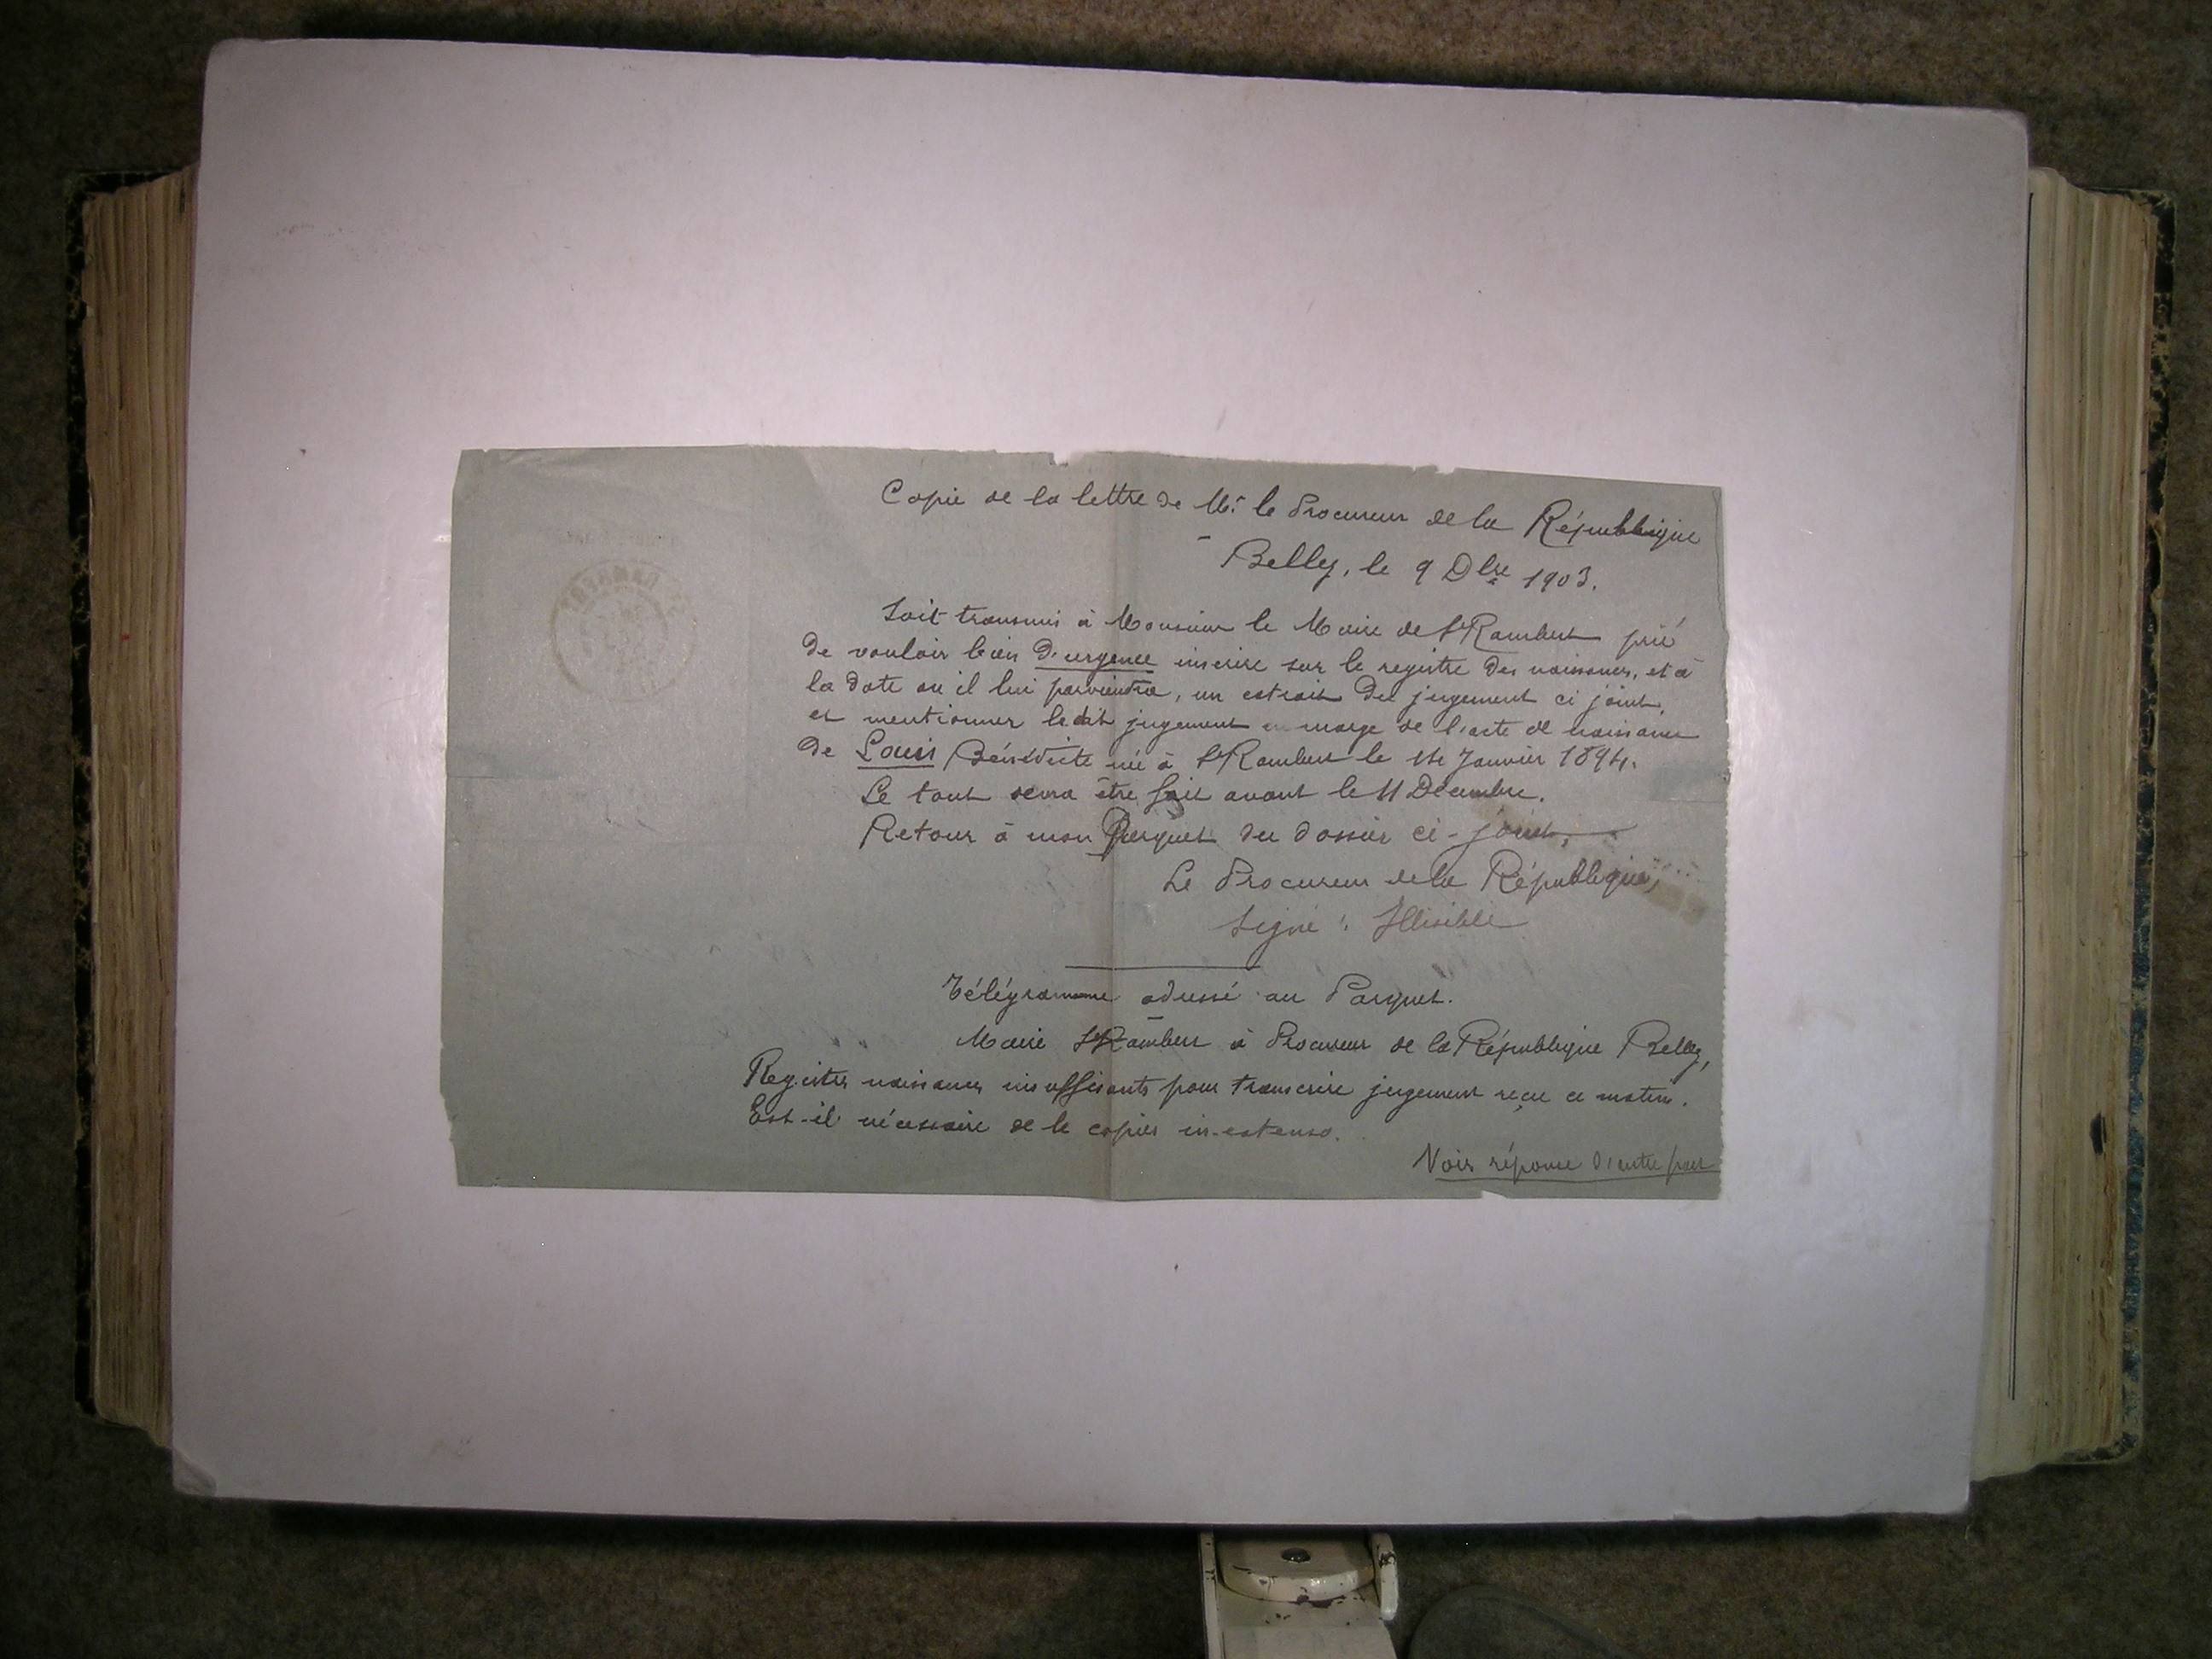 Copie de la lettre de Mr. le Procureur de la République
Belley, le 9 Dbre 1903.
Soit transmis à Monsieur le Maire de St Rambert prié
de vouloir bien d'urgence inscrire sur le registre des naissances, et à
la date où il lui parviendra, un extrait du jugement ci joint,
et mentionner ledit jugement en marge de l'acte de naissance
de Louis Bénédicte née à St Rambert le 14 Janvier 1894.
Le tout devra être fait avant le 11 Décembre.
Retour à mon Parquet du dossier ci-joint,
Le Procureur de la République,
Signé : Illisible
Télégramme adressé au Parquet.
Maire St Rambert à Procureur de la République Belley,
Registres naissances insuffisants pour transcrire jugement reçu ce matin.
Est-il nécessaire de le copier in-extenso.
Voir réponse d'autre part